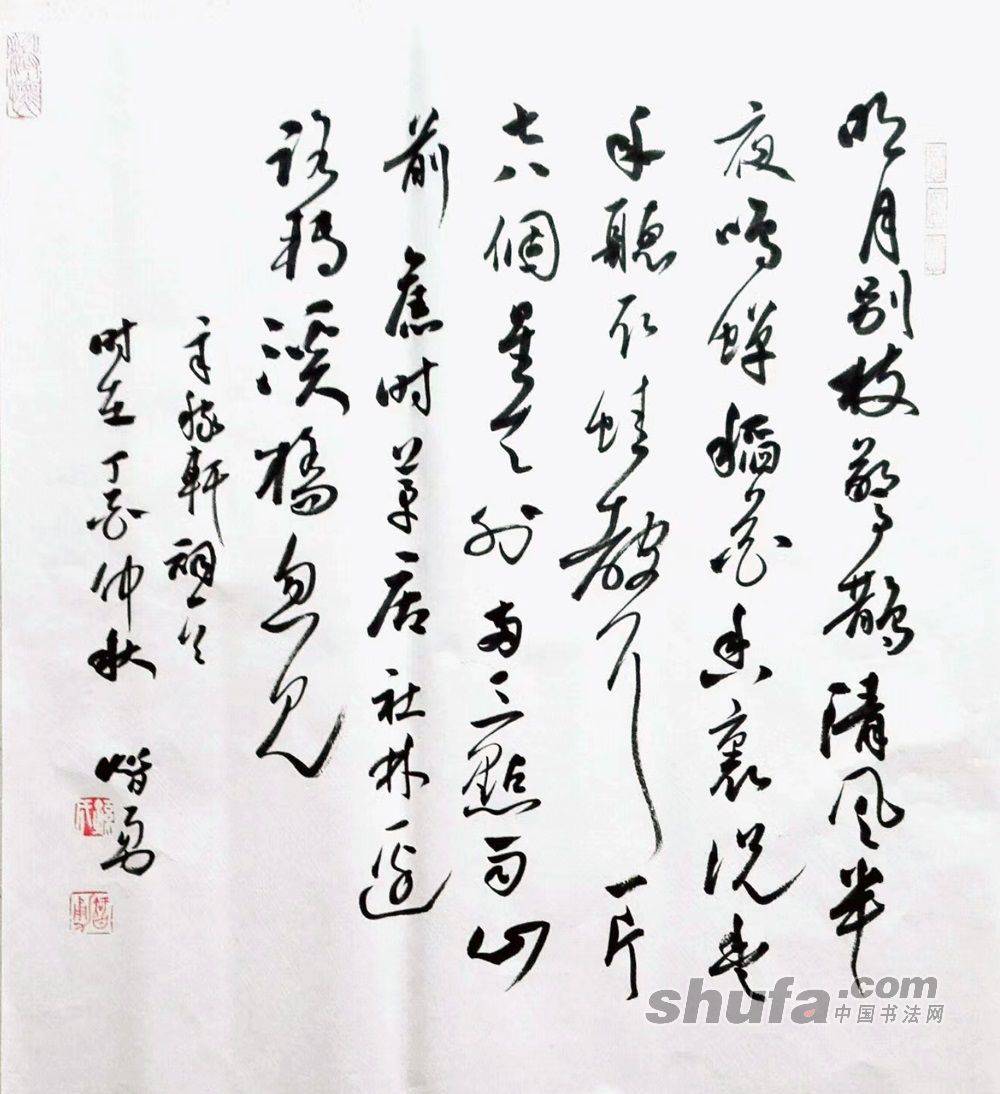 明月别枝驚鵲清風半
夜鳴蟬稻花香裏説豐
年聽取蛙聲一片
七八個星天外兩三點雨山
前舊時茅店社林邊
路轉溪橋忽見
辛稼軒詞一首
时在丁酉仲秋 勇
shufa.com
中国书法网